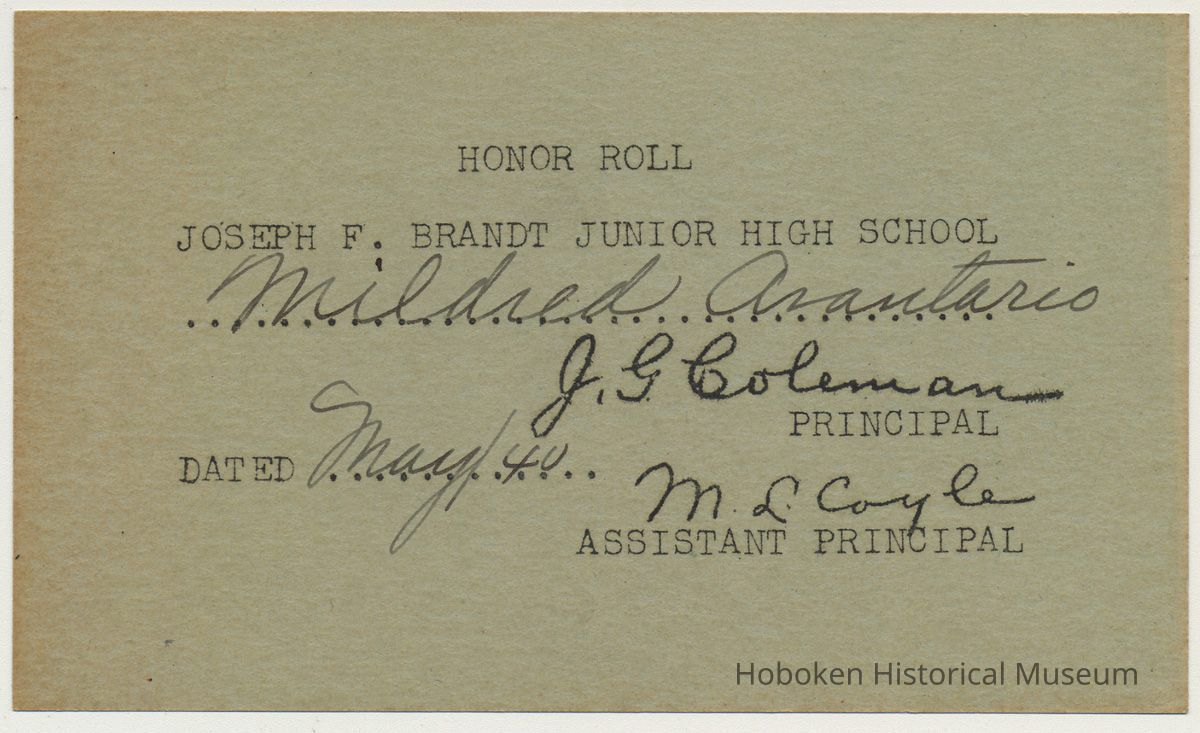 HONOR ROLL
JOSEPH F. BRANDT JUNIOR HIGH SCHOOL
Mildred Avantario
J. G. Coleman
PRINCIPAL
DATED May/40
M. L. Coyle
ASSISTANT PRINCIPAL
Hoboken Historical Museum